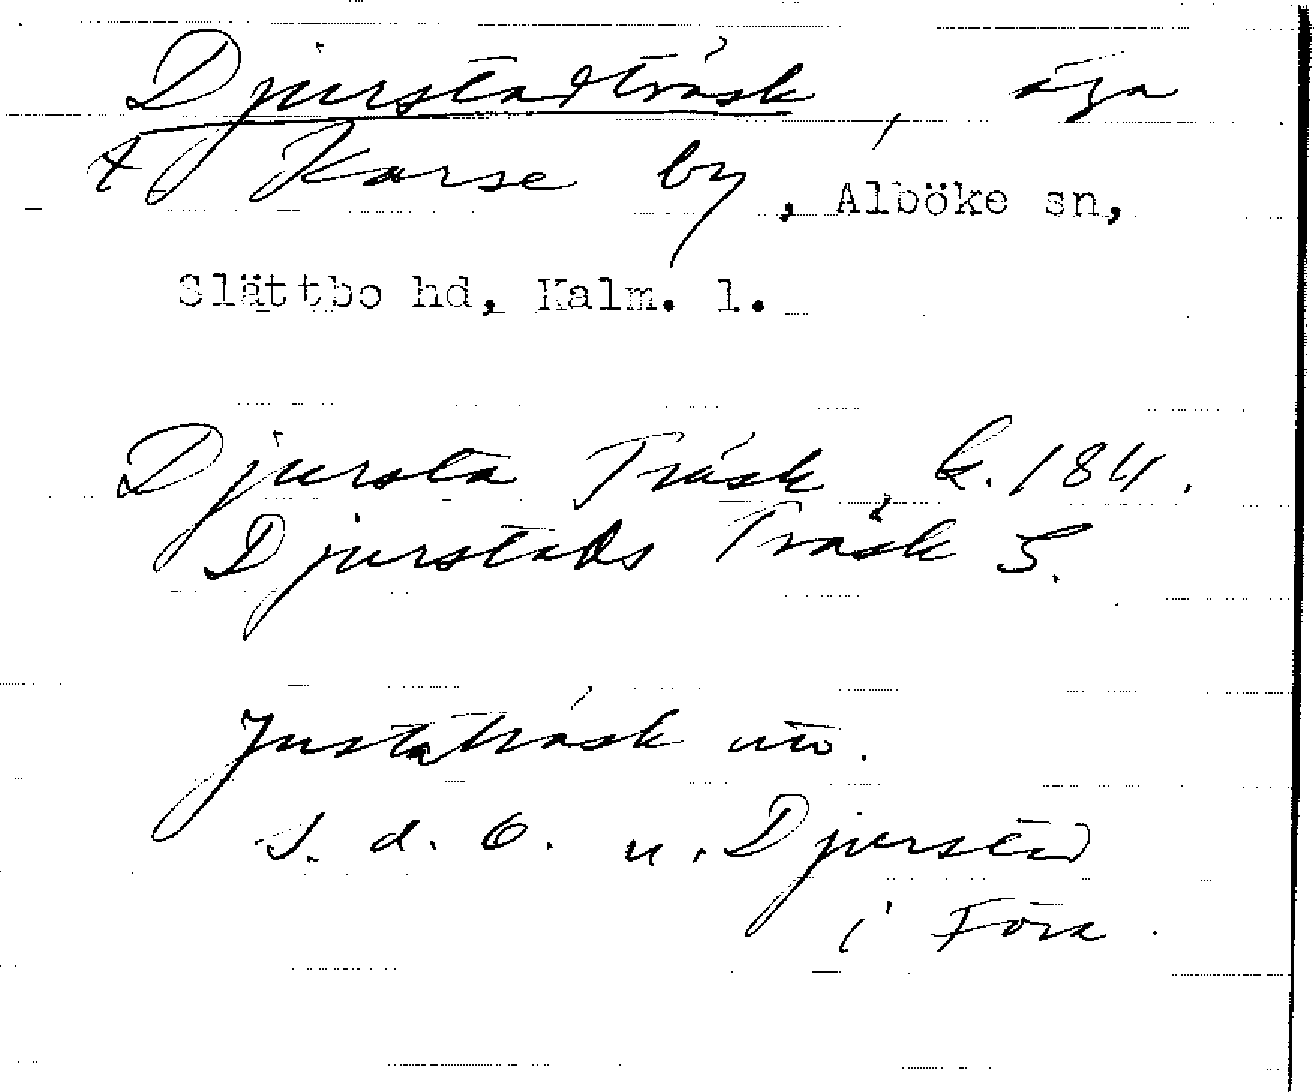 Djurstadträsk, äga
t Karse by, Alböke sn,
Slättbo hd, Kalm. l.
Djursta Träsk, k. 1811.
Djurstads Träsk S.
Justaträsk uto.
J. d. O. u. Djurstad
i Föra.